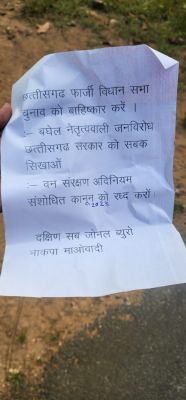 छत्तीसगढ फार्जी विधान सभा
चुनाव को बाहिष्कार करें ।
:– बघेल नेतृत्ववाली जनविरोध
छत्तीसगढ सरकार को सबक
सिखाओं
:– वन संरक्षण अदिनियम
संशोधित कानून को रध्द करों
2023
दक्षिण सब जोनल ब्युरो
भाकपा माओवादी